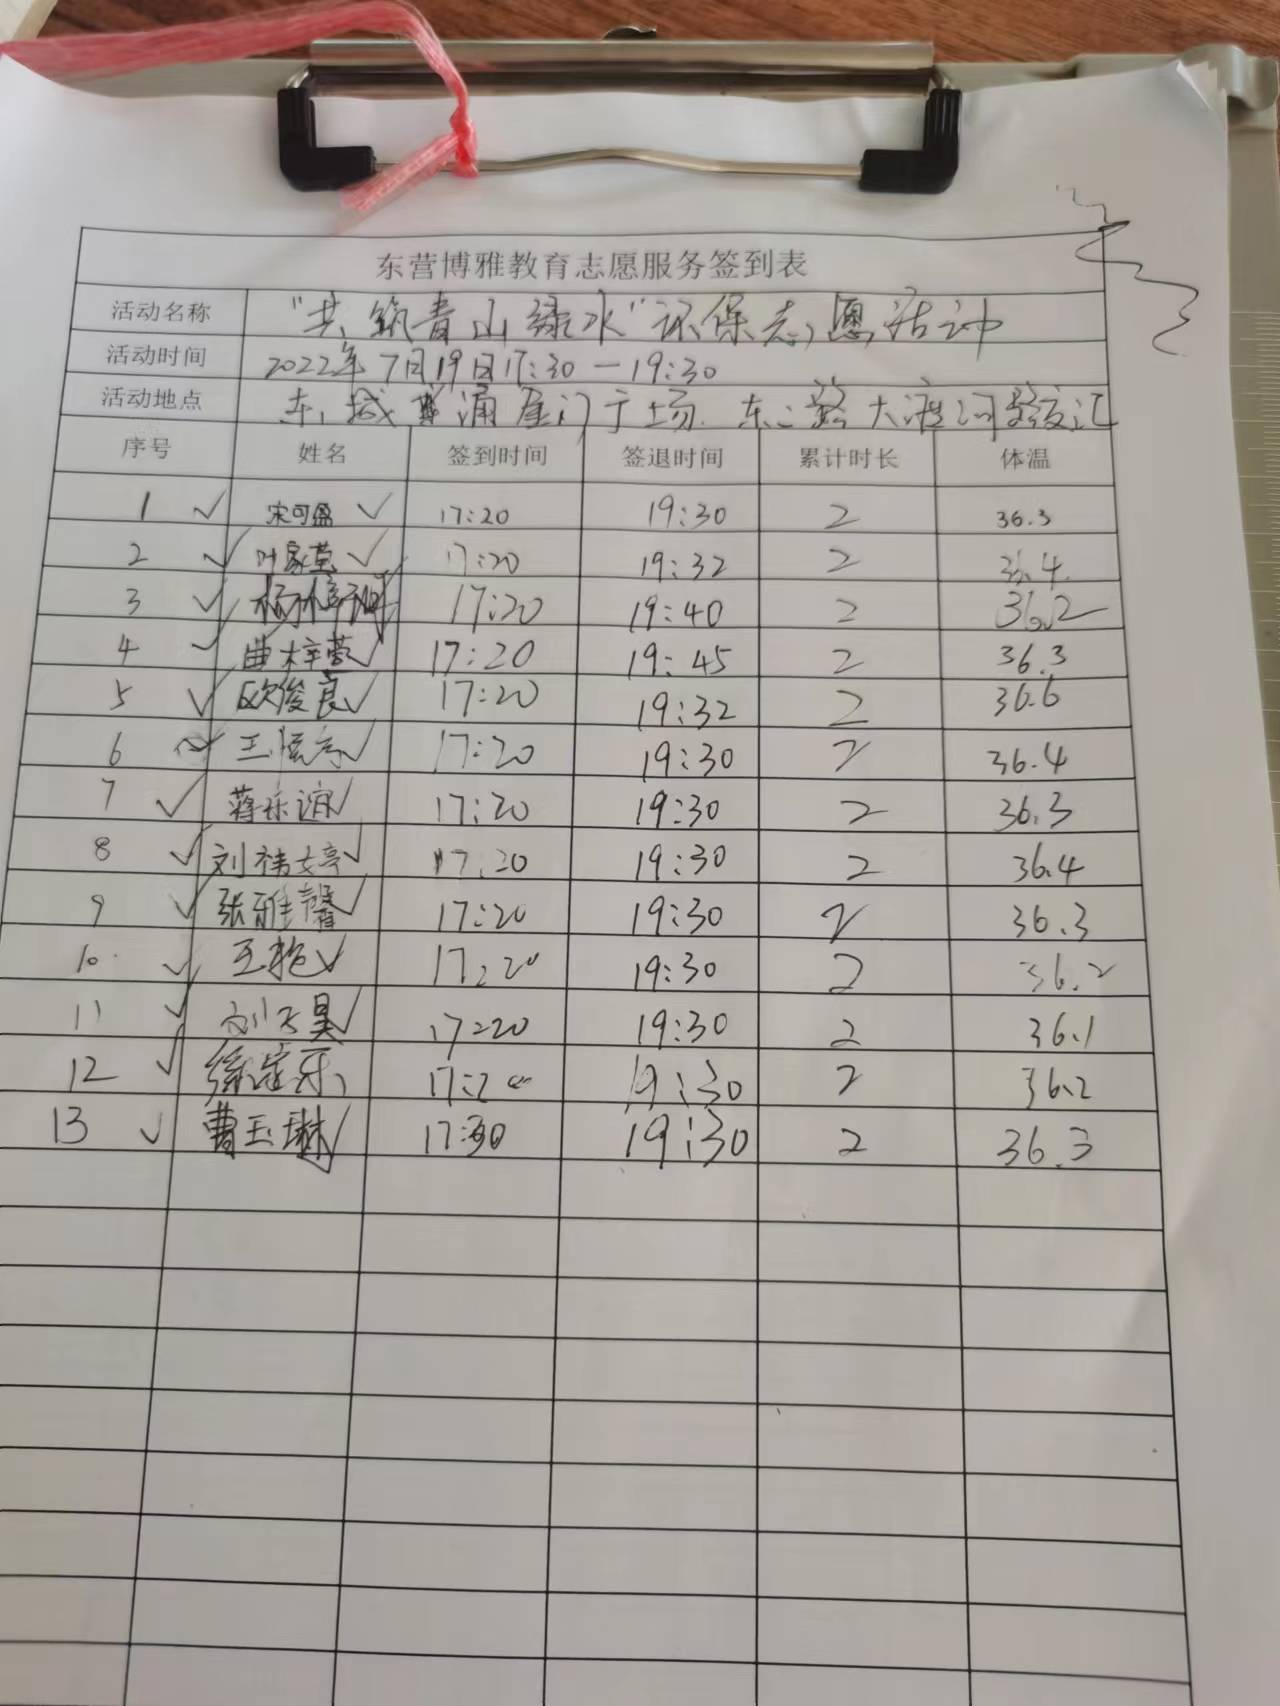 东营博雅教育志愿服务签到表
活动名称 "共筑青山绿水"环保志愿活动
活动时间 2022年7月19日17:30—19:30
活动地点 东城 涌 门广场. 东二路大渡河路交汇
序号 姓名 签到时间 签退时间 累计时长 体温
1 宋可盈 17:20 19:30 2 36.3
2 叶家莹 17:20 19:32 2 36.4
3 17:20 19:40 2 36.2
4 曲梓萱 17:20 19:45 2 36.3
5 欧俊良 17:20 19:32 2 36.6
6 王 17:20 19:30 2 36.4
7 蒋乐谊 17:20 19:30 2 36.3
8 刘祎婷 17:20 19:30 2 36.4
9 张雅馨 17:20 19:30 2 36.3
10 王艳 17:20 19:30 2 36.2
11 刘天昊 17:20 19:30 2 36.1
12 徐 乐 17:20 19:30 2 36.2
13 曹玉琳 17:30 19:30 2 36.3